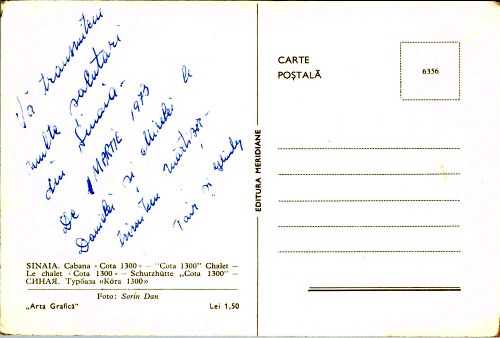 Vă transmitem
multe salutări
din Sinaia -
De 1 MARTIE 1973
Danielei și Mirelei le
trimitem mărțișor -
și
SINAIA. Cabana «Cota 1300» – "Cota 1300" Chalet –
Le chalet «Cota 1300» – Schutzhütte „Cota 1300" –
СИНАЯ. Турбаза «Кóта 1300»
Foto: Sorin Dan
„Arta Grafică"
Lei 1,50
EDITURA MERIDIANE
CARTE
POȘTALĂ
6356